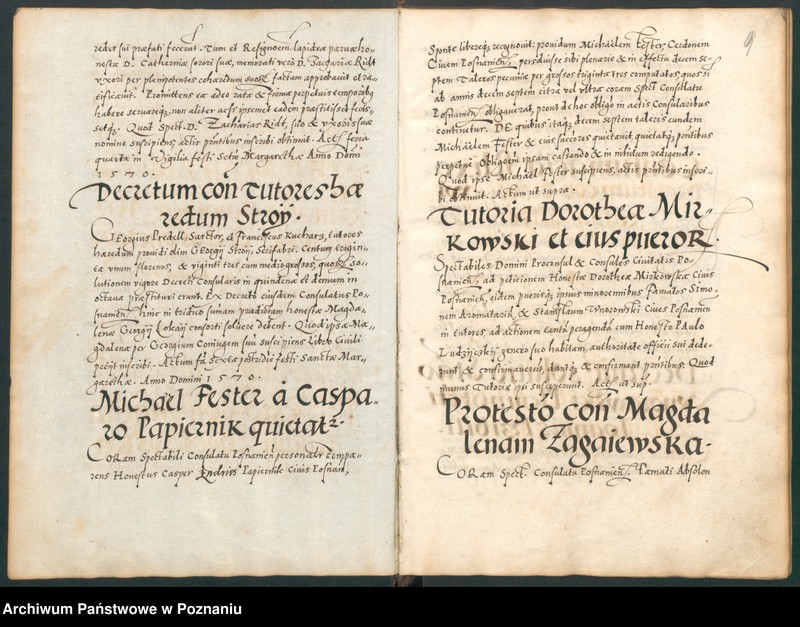 redes sui præfati fecerūt. Tum et Resignoēm lapideæ parvæ ho-
nestæ D. Catherinæ sorori suæ, memorati vero D. Zacpariæ Ridt
uxori per plenipotentes cohæredum suoꝝ factam approbavit et ra-
tificavit. Promittens ea adeo rata & firma perpetuis temporibꝫ
habere servareqꝫ, non aliter ac si insemet eadem præstitisset fecis-
setqꝫ. Quod Spect. D. Zacharias Ridt, suo & uxoris suæ
nomine suscipiens, actis pn̄tibus inscribi obtinuit. Actꝭ feria
quarta in Vigilia festi Sctæ Margarethæ Anno Dom̄
1570.
Decretum con̄ Tutores hæ
redum Stroÿ.
Georgius Predell, Sartor, et Franciscus Kucharz, tutores
hæredum providi olim Georgij Stroij, Scrifabri. Centum &vigin-
ti & unum florenos, & viginti tres cum medio grossos, quoꝝ so-
lutionem vigore Decreti Consularis in quindena et demum in
octava præstituri erant. Ex Decreto eiusdem Consulatus Po-
snanien̄. hinc in triduo sumam prædictam honestæ Magda-
lenæ Georgij consorti solvere debent. Quod ipsa Ma-
gdalena per Georgium Coniugem suū suscipiens Libro Civili
petijt inscribi. Actum fr̄ sexta postridie festi Sanctæ Mar-
garethæ. Anno Domini 1570.
Michaël Fester à Caspa-
ro Papiernik quietatꝛ.
Coram Spectabili Consulatu Posnanien̄ personalr̄ compa-
rens Honestus Casper Endris Papiernik Civis Posnan̄,
9
Sponte libereqꝫ recognovit: providum Michaëlem Fester, Cerdonem
Civem Posnanien̄, persolvisse sibi plenarie & in effectu decem se-
ptem Taleros pecuniæ per grossos triginta tres computatos, quos si-
bi ab annis decem septem citra vel ultra coram Spect. Consulatu
Posnanien̄. obligaverat, prout de hoc obligo in actis Consularibus
continetur. De quibus itaqꝫ decem septem taleris eundem
Michaëlem Fester & eius succores quietavit, quietatqꝫ pn̄tibus
perpetuo. Obligoēm ipsam cassando & in nihilum redigendo.
Quod ipse Michaël Fester suscipiens, actis pn̄tibus inscri-
bi obtinuit. Actum ut supra.
Tutoria Dorotheæ Mir-
kowski et eius pueroꝝ.
Spectabiles Domini Proconsul & Consules Civitatis Po-
snanien̄, ad petitionem Honestæ Dorotheæ Mirkowska Civis
Posnanien̄, eidem puerisqꝫ ipsius minorennibus Famatos Simo-
nem Aromatariū & Stanislaum Cives Posnanien̄
in tutores, ad actionem causæ peragendæ cum Honesto Paulo
genero suo habitam, authoritate officij sui dede-
runt & confirmaverūt, dantqꝫ & confirmant pn̄tibus. Quod
munus Tutoriæ ipsi susceperunt. Actꝭ ut sup̄.
Protesto con̄ Magda
lenam Zagaiewska.
Coram Spect. Consulatu Posnanien̄. Famati Absolon
Archiwum Państwowe w Poznaniu